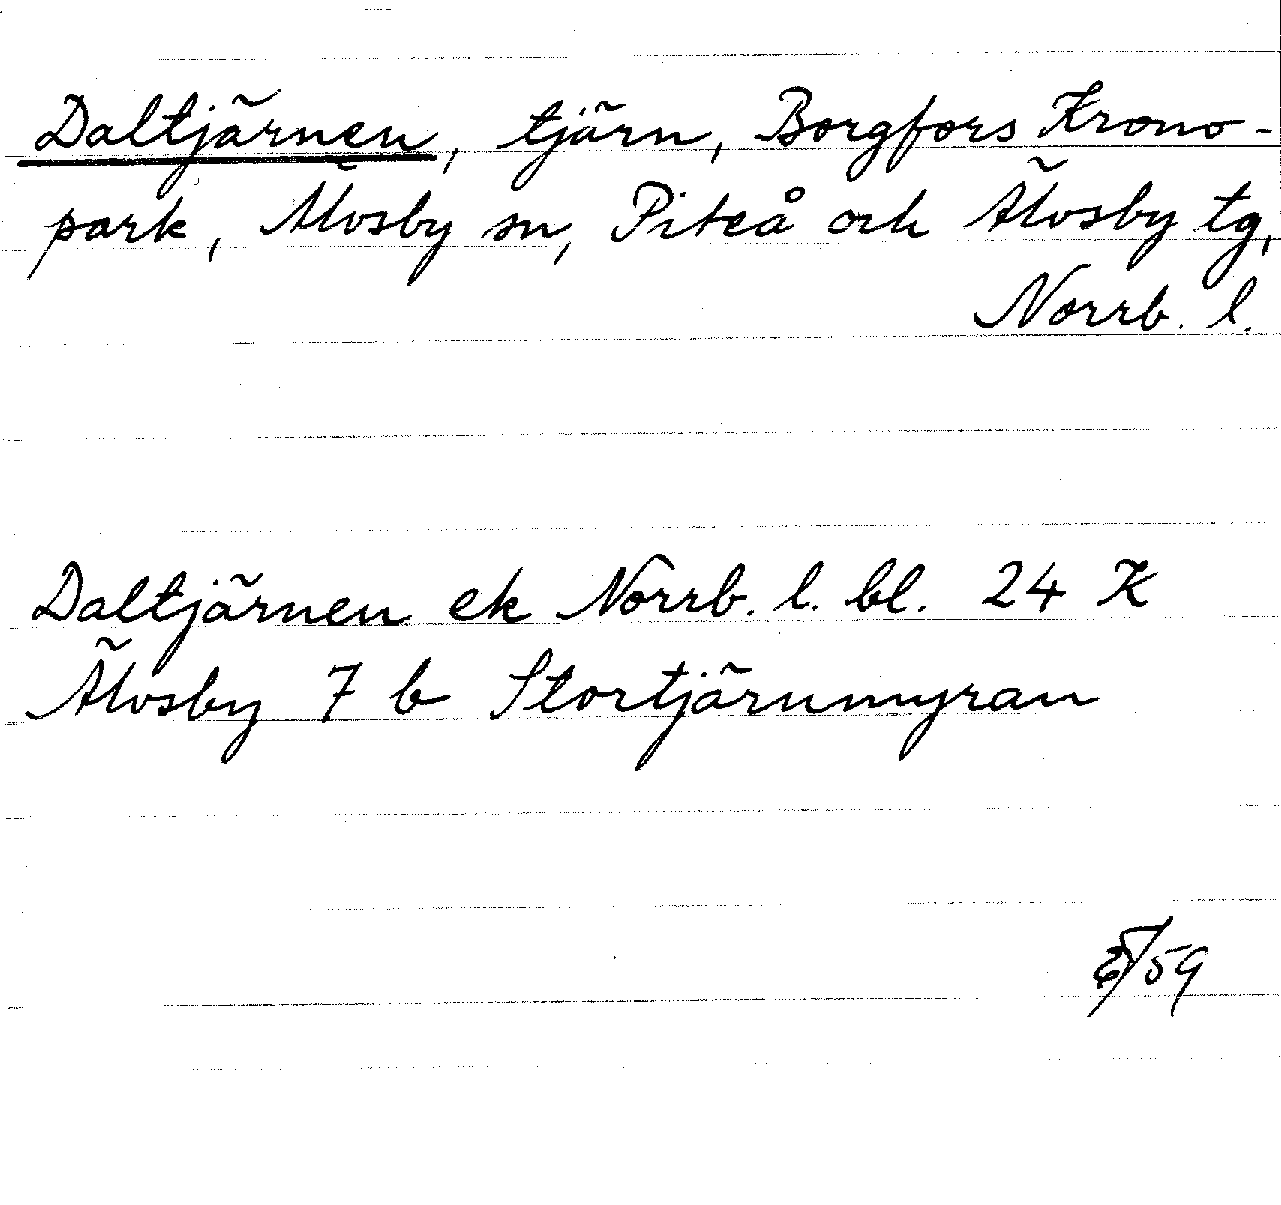 Daltjärnen, tjärn, Borgfors Krono-
park, Älvsby sn, Piteå och Älvsby tg,
Norrb. l.
Daltjärnen ek Norrb. l. bl. 24 K
Älvsby 7 b Stortjärnmyran
/59